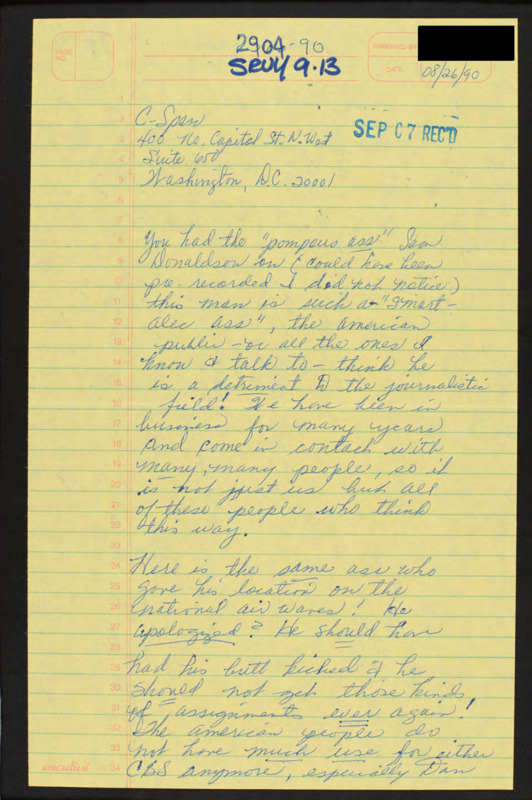 2904-90
SEVY 9.13
PAGE NO.
PREPARED BY
DATE 08/26/90
SEP 07 REC'D
C-Span
400 No. Capitol St. N. West
Suite 650
Washington, D.C. 20001
You had the "pompous ass" Sam
Donaldson on (could have been
pre-recorded I did not notice)
this man is such a "smart-
alec ass", the american
public - or all the ones I
know & talk to - think he
is a detriment to the journalistic
field! We have been in
business for many years
and come in contact with
many, many people, so it
is not just us but all
of these people who think
this way.
Here is the same ass who
gave his location on the
national air waves! He
apologized? He should have
had his butt kicked & he
should not get those kinds
of assignments ever again!
The american people do
not have much use for either
CBS anymore, especially Dan
executive
1
2
3
4
5
6
7
8
9
10
11
12
13
14
15
16
17
18
19
20
21
22
23
24
25
26
27
28
29
30
31
32
33
34